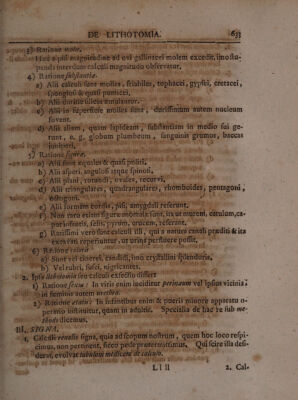 DE LITHOTOMIA. 633
3) Ratione molis.
Hæc ipsa magnitudine ad ovi gallinacei molem excedit, imo stupenda interdum calculi magnitudo observatur.
4) Ratione substantiæ.
a) Alii calculi sunt molles, friabiles, tophacei, gypsei, cretacei, spongiosi & quasi pumicei.
b) Alii duritie silices æmulantur.
c) Alii in superficie molles sunt, durissimum autem nucleum fovent.
d) Alii aliam, quam lapideam, substantiam in medio sui gerunt, e. g. globum plumbeum, sanguinis grumus, baccas juniperi,
5) Ratione figuræ.
a) Alii sunt æquales & quasi politi.
b) Alii asperi, angulosi atque spinosi.
c) Alii plani, rotundi, ovales, recurvi.
d) Alii triangulares, quadrangulares, rhomboides, pentagoni, octogoni.
e) Alii formam cordis, pisi, amygdali referunt.
f) Non raro etiam figura anomala sunt, ita ut murem, catulum, caput infantis, felis, pyrum, crucem, referant.
g) Rarissimi vero sunt calculi illi, qui a natura canali præditi & ita excavati reperiuntur, ut urina perfluere possit.
6) Ratione coloris
a) Sunt vel cinerei, candidi, imo crystallini splendoris.
b) Vel rubri, fusci, nigricantes.
2. Ipsa lithotomia seu calculi exsectio differt
1) Ratione sexus: In viris enim inciditur perinæum vel ipsius vicinia: in feminis autem urethra.
2) Ratione ætatis: In infantibus enim & pueris minore apparatu operatio instituitur, quam in adultis. Specialia de hac re sub methodis dicemus.
III. SIGNA.
1. Calculi renalis signa, quia ad scopum nostrum, quem hoc loco respicimus, non pertinent, sicco pede prætermittimus. Qui scire illa desiderat, evolvat tabulam medicam de calculo.
L l l l 2. Cal-